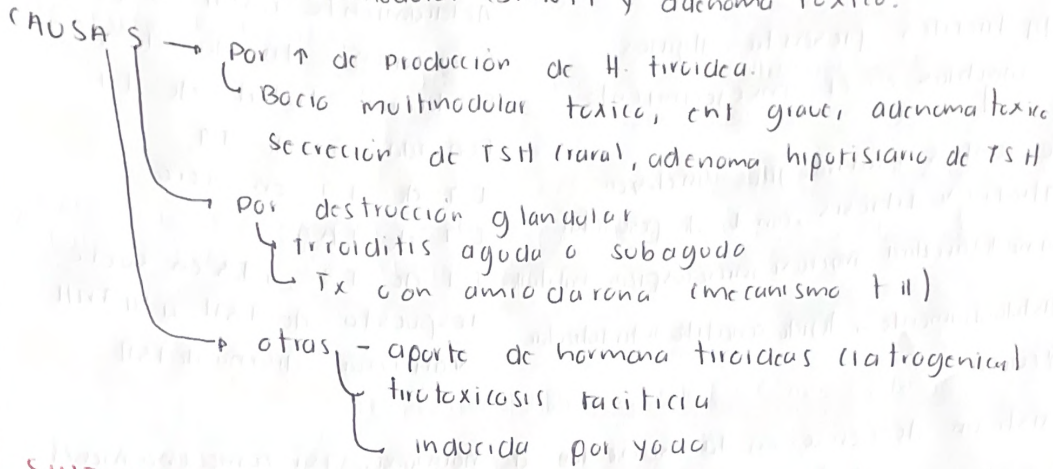 y adenoma toxico.
CAUSAS → Por ↑ de producción de H. tiroidea.
Bocio multinodular toxico, enf grave, adenoma toxico
secreción de TSH (rara), adenoma hipofisiario de TSH
→ Por destrucción glandular
tiroiditis aguda o subaguda
Tx con amiodarona (mecanismo t II)
→ otras - aporte de hormona tiroideas (iatrogenica)
tirotoxicosis facticia
inducida por yodo